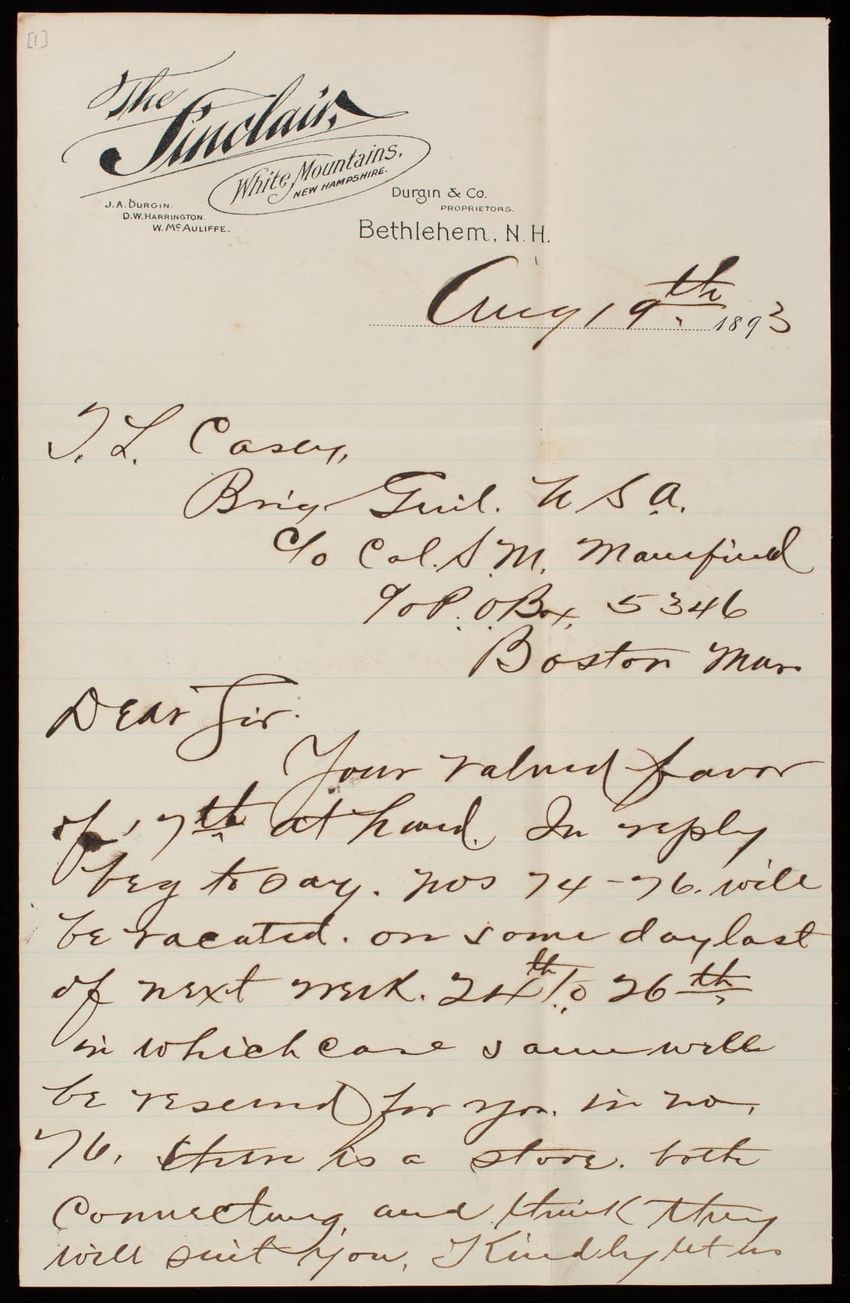 [1]
The
Sinclair,
White Mountains,
NEW HAMPSHIRE.
J. A. DURGIN.
D. W. HARRINGTON.
W. McAULIFFE.
Durgin & Co.
PROPRIETORS.
Bethlehem, N. H.
Aug 19th 1893
T. L. Casey,
Brig Genl. U S A.
c/o Col. S. M. Mansfield
c/o P. O Box, 5346
Boston Mass
Dear Sir.
Your valued favor
of 17th at hand. In reply
beg to say. nos 74-76. will
be vacated. on some day last
of next week. 24th to 26th
in which case same will
be reserved for you. in no.
76. there is a stove. both
connecting, and think they
will suit you, Kindly let us